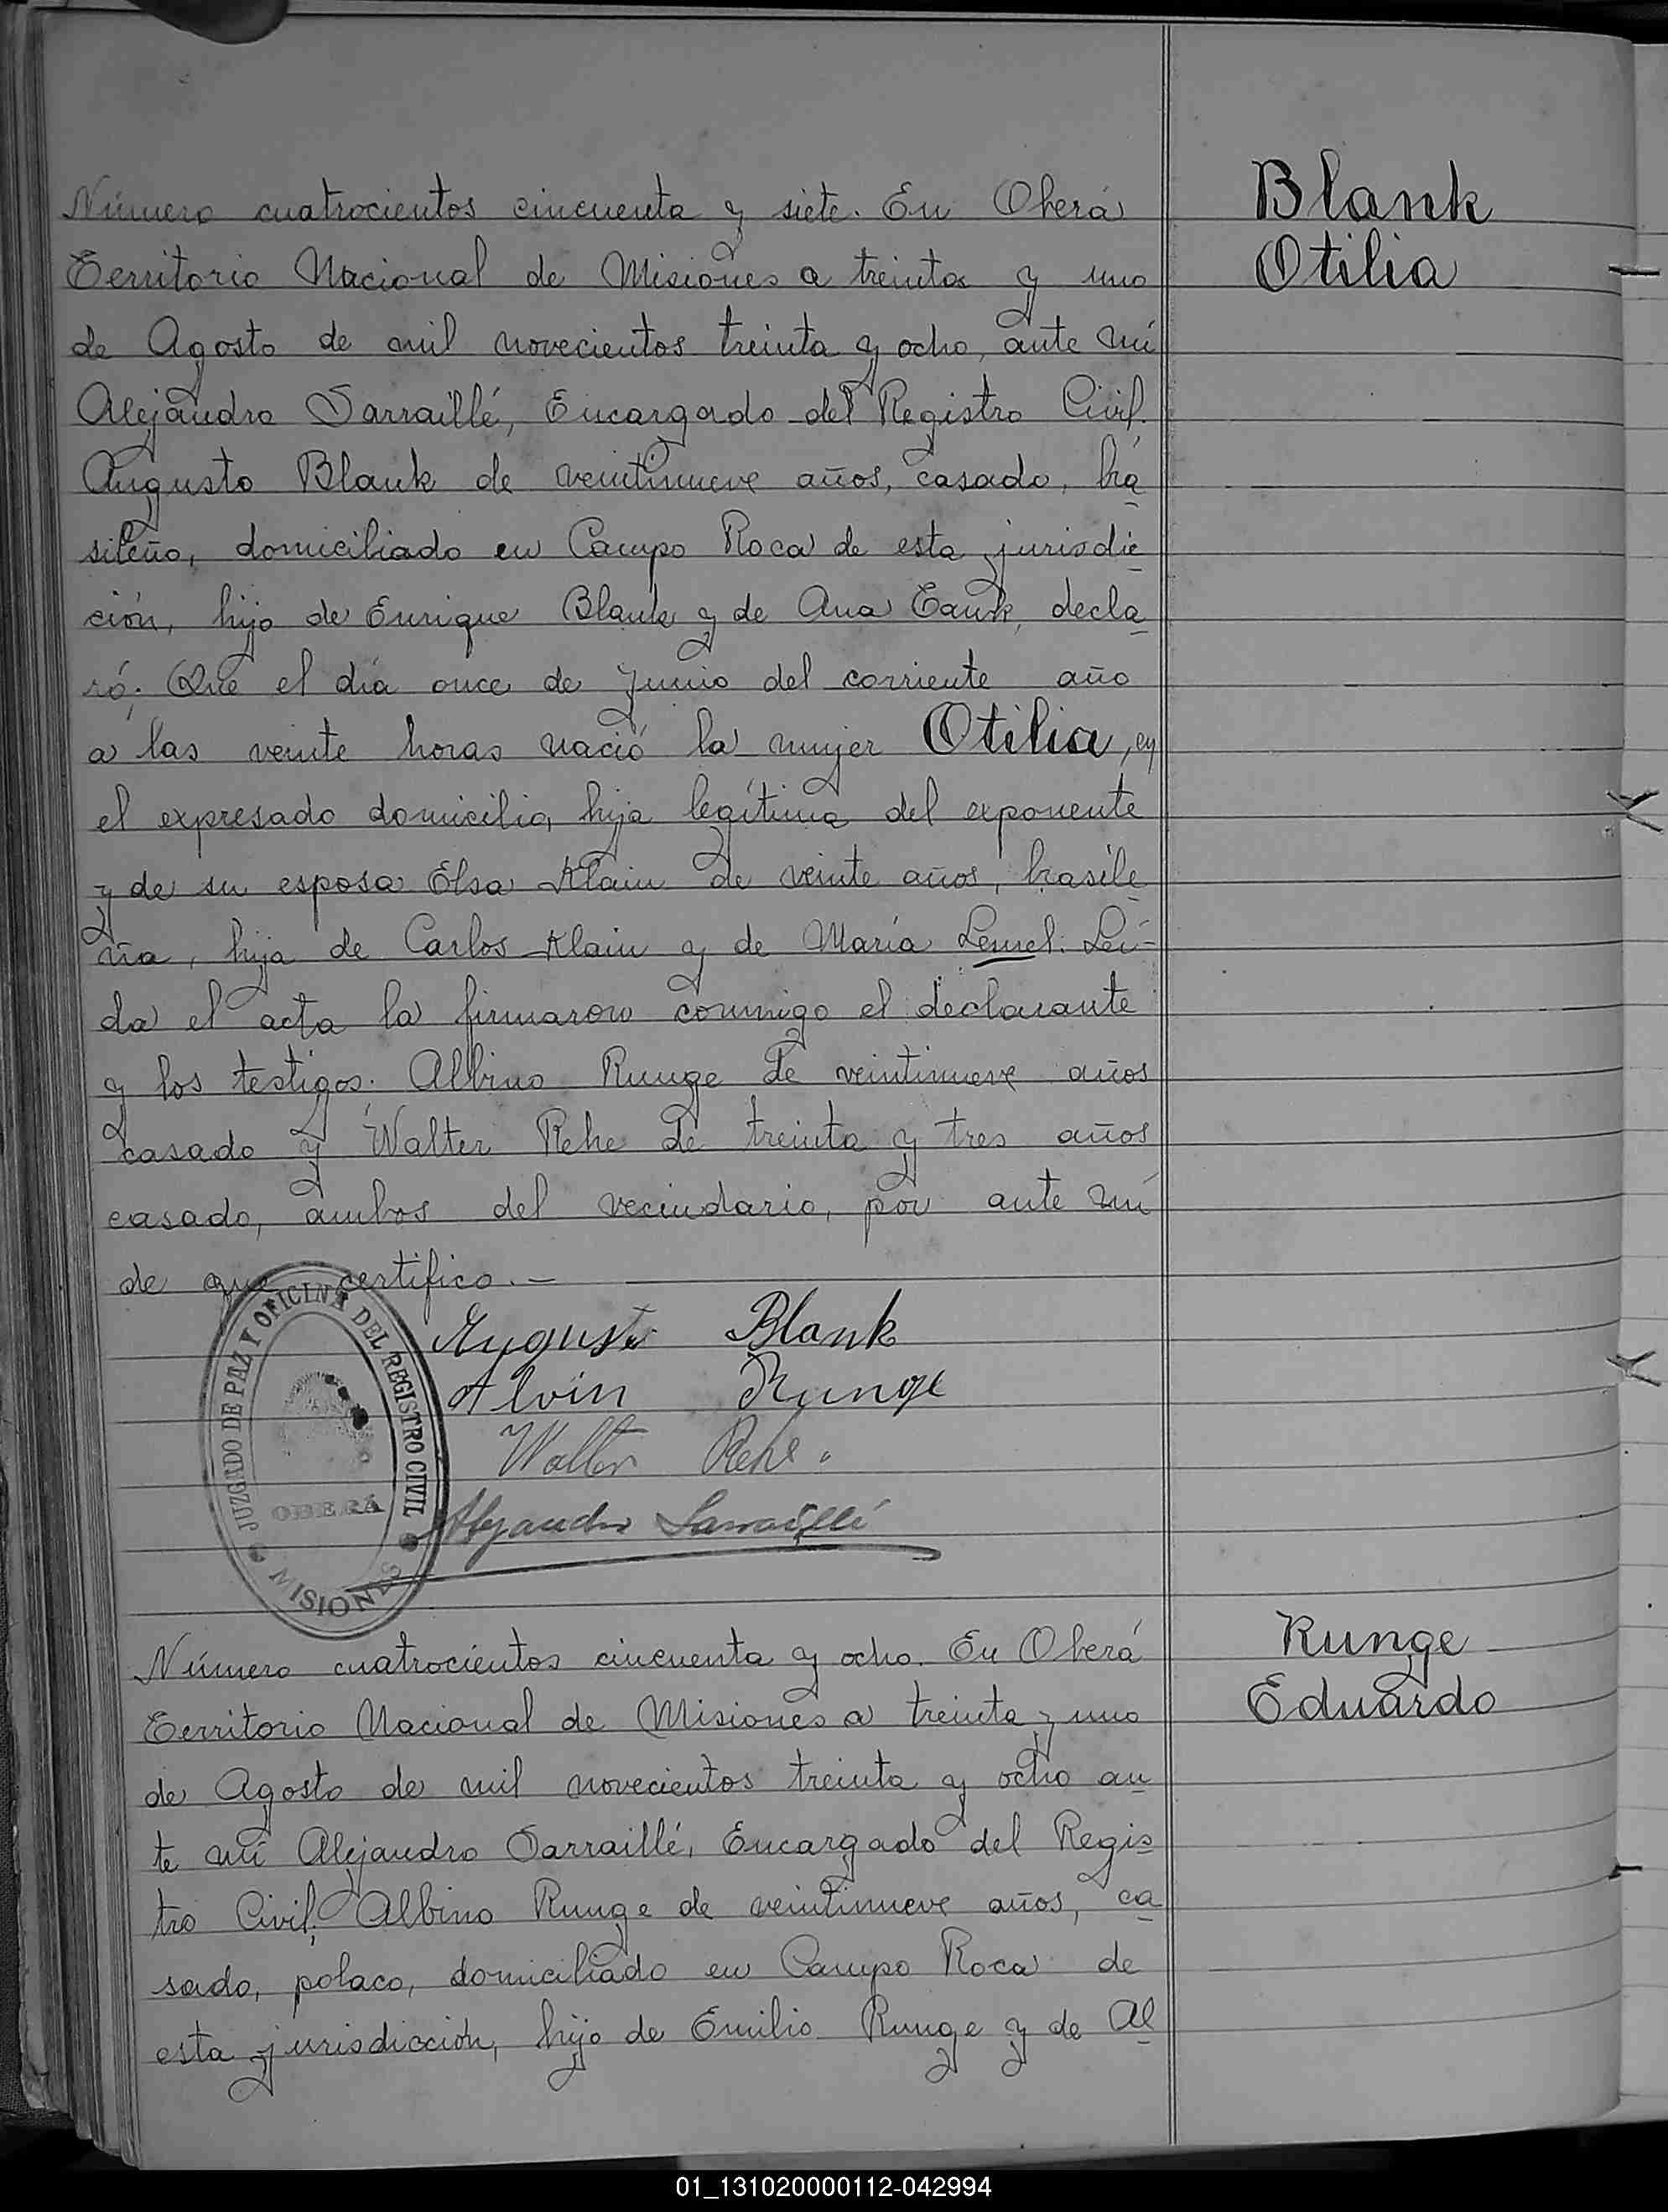 Blank
Otilia
Número cuatrocientos cincuenta y siete. En Oberá
Territorio Nacional de Misiones a treinta y uno
de Agosto de mil novecientos treinta y ocho, ante mí
Alejandro Sarraillé, Encargado del Registro Civil.
Augusto Blank de veintinueve años, casado, bra
sileño, domiciliado en Campo Roca de esta jurisdic
ción, hijo de Enrique Blank y de Ana, decla
ró: Que el día once de Junio del corriente año
a las veinte horas nació la mujer Otilia, en
el expresado domicilio, hija legítima del exponente
y de su esposa Elsa Klain de veinte años, brasile
ña, hija de Carlos Klain y de María Lemel. Leí-
da el acta la firmaron conmigo el declarante
y los testigos: Albino Runge de veintinueve años
casado y Walter Rehe de treinta y tres años
casado, ambos del vecindario, por ante mí
de que certifico.—
August Blank
Alvin Runge
Walter Rehe.
Alejandro Sarraillé
JUZGADO DE PAZ Y OFICINA DEL REGISTRO CIVIL
OBERÁ
MISIONES
Runge
Eduardo
Número cuatrocientos cincuenta y ocho. En Oberá
Territorio Nacional de Misiones a treinta y uno
de Agosto de mil novecientos treinta y ocho an
te mí Alejandro Sarraillé, Encargado del Regis
tro Civil; Albino Runge de veintinueve años, ca
sado, polaco, domiciliado en Campo Roca de
esta jurisdicción, hijo de Emilio Runge y de Al
01_131020000112-042994